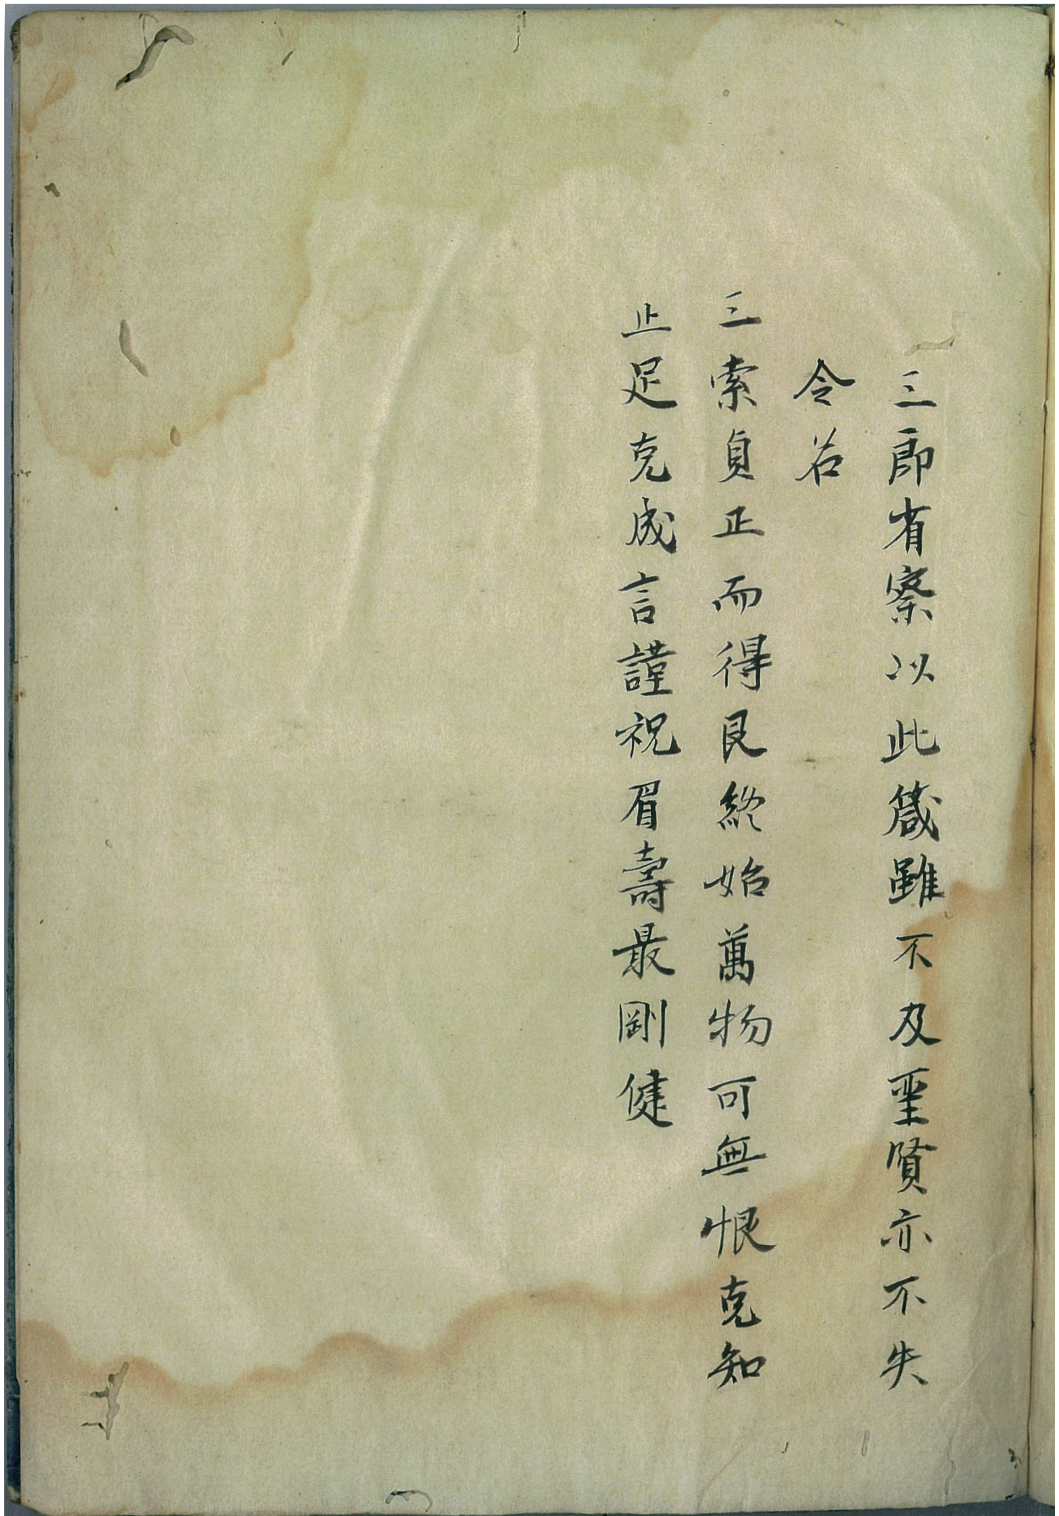 三郎省察以此箴雖不及聖賢亦不失
令名
三索貞正而得艮終始萬物可無恨克知
止足克成言謹祝眉壽最剛健